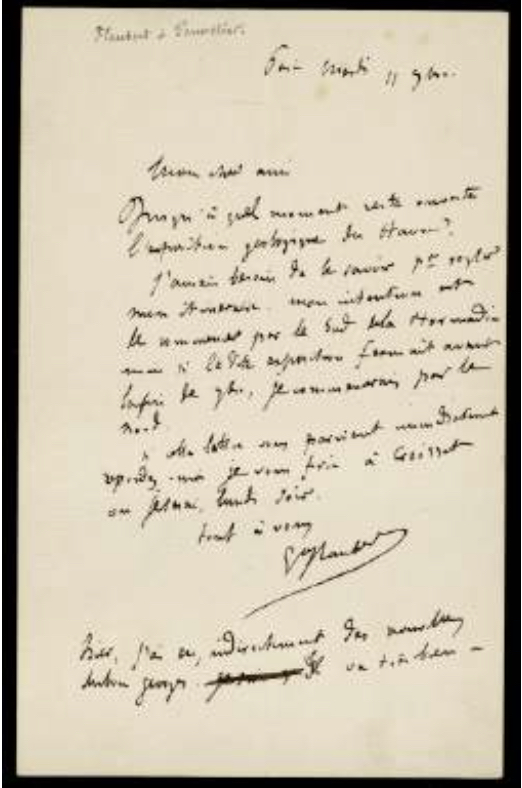 Flaubert à
Paris Mardi 11 7bre.
Mon cher ami
Jusqu'à quel moment reste ouverte
l'exposition géologique du Havre?
J'aurais besoin de le savoir pr régler
mon itinéraire. mon intention est
de commencer par le Sud de la Normandie
mais si la dite exposition fermait avant
la fin de 7bre, je commencerais par le
nord
Si cette lettre vous parvient immédiatement
répondez-moi je vous prie à Croisset
où je serai, lundi soir.
tout à vous
Gve Flaubert
Hier, j'ai eu, indirectement des nouvelles
du bon georges. Il va très bien -